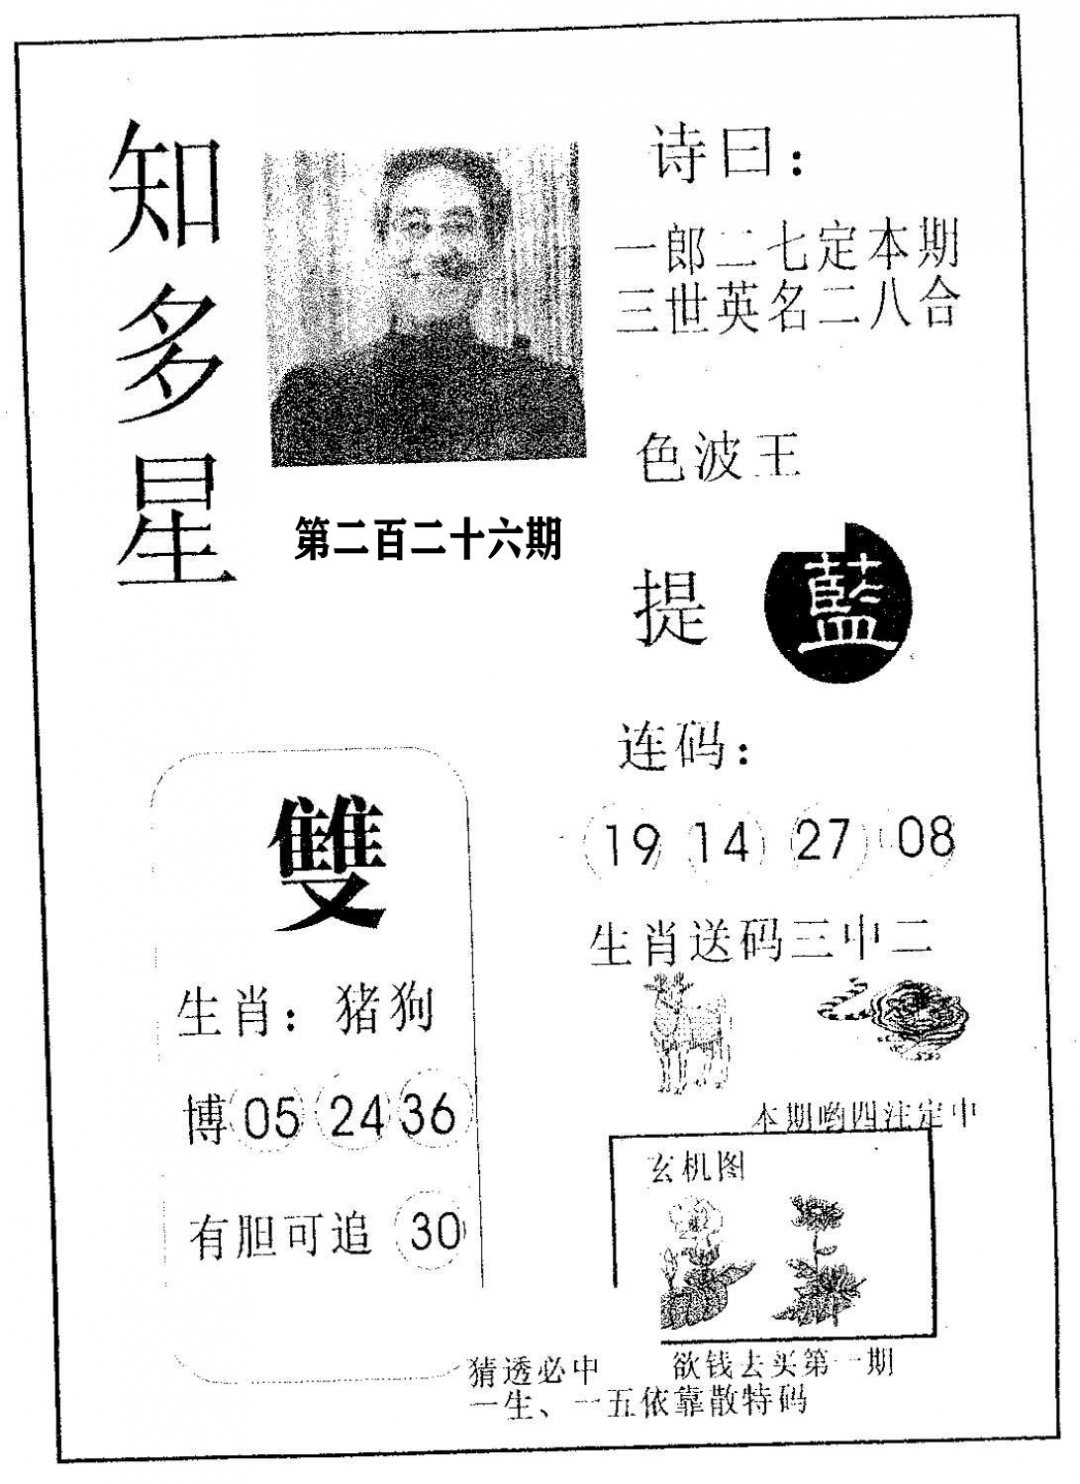 知多星
第二百二十六期
诗曰：
一郎二七定本期
三世英名二八合
色波王
提 藍
连码：
19 14 27 08
生肖送码三中二
本期哟四注定中
玄机图
雙
生肖：猪狗
博 05 24 36
有胆可追 30
猜透必中 欲钱去买第一期
一生、一五依靠散特码